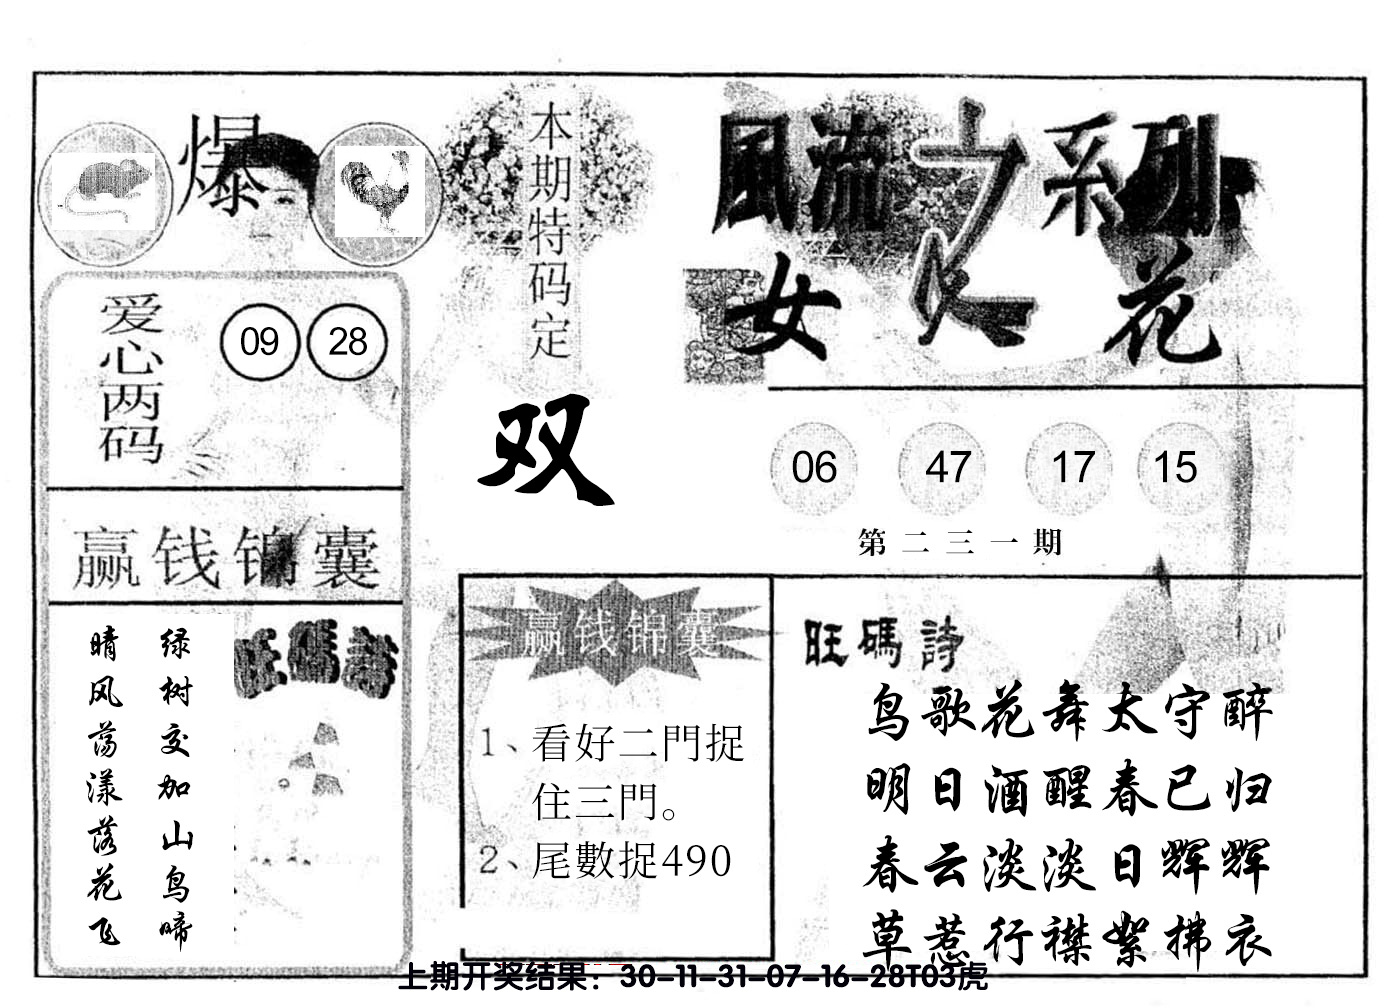 爆
本期特码定
双
風流之系列
女人花
爱心两码
09 28
06 47 17 15
第二三一期
赢钱锦囊
绿树交加山鸟啼
晴风荡漾落花飞
旺碼詩
赢钱锦囊
1、看好二門捉
住三門。
2、尾數捉490
旺碼詩
鸟歌花舞太守醉
明日酒醒春已归
春云淡淡日辉辉
草惹行襟絮拂衣
上期开奖结果：30-11-31-07-16-28T03虎